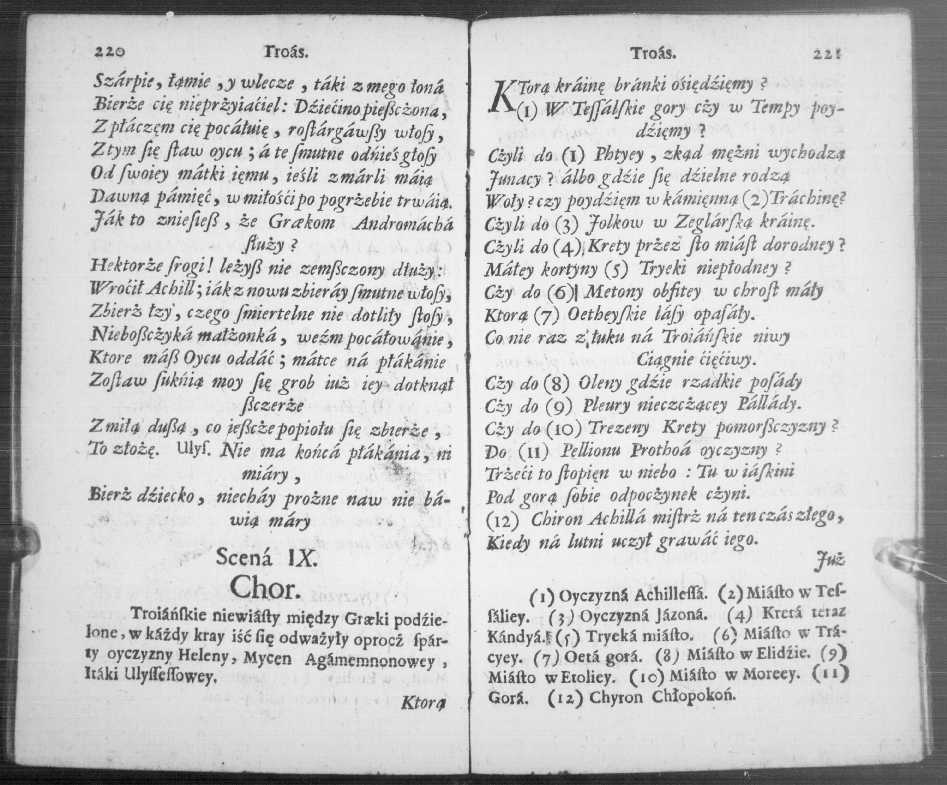 220 Troás.
Szárpie, łąmie, y wlecze, táki z mego łoná
Bierże cię nieprżyiaćiel: Dźiećino pießcżona,
Z płáczęm cię pocáłuię, rostárgáwßy włosy,
Z tym się staw oycu; á te smutne odńieś głosy
Od swoiey mátki ięmu, ieśli zmárli máią
Dawną pámięć, w miłośći po pogrzebie trwáią.
Ják to zniesieß, że Græekom Andromáchá
służy?
Hektorże srogi! leżyß nie zemßczony dłuży:
Wroćił Achill; iák z nowu zbieráy smutne włosy,
Zbierż łzy, czego smiertelne nie dotliły stosy,
Nieboßcżyká małżonká, weźm pocáłowánie,
Ktore máß Oycu oddáć; mátce ná płákánie
Zostaw sukńią moy się grob iuż iey dotknął
ßczerże
Z miłą dußą, co ießcże popiołu się zbierże,
To złożę. Ulys. Nie ma końcá płákánia, ni
miáry,
Bierż dźiecko, niecháy prożne naw nie bá-
wią máry
Scená IX.
Chor.
Troiáńskie niewiásty między Græki podźie-
lone, w káżdy kray iść się odważyły oprocż spár-
ty oyczyzny Heleny, Mycen Agámemnonowey,
Itáki Ulyssessowey.
Ktorą
Troás. 221
KTorą kráinę bránki ośiędźięmy?
(1) W Tessálskie gory cży w Tempy poy-
dźięmy?
Cżyli do (1) Phtyey, zkąd mężni wychodzą
Junacy? álbo gdźie się dźielne rodzą
Woły? czy poydźięm w kámięnną (2) Tráchinę?
Cżyli do (3) Jolkow w Zeglárską kráinę.
Cżyli do (4) Krety przez sto miást dorodney?
Máłey kortyny (5) Tryeki niepłodney?
Cży do (6) Metony obfitey w chrost máły
Ktorą (7) Oetheyskie lásy opasáły.
Co nie raz z łuku ná Troiáńskie niwy
Ciągnie ćięćiwy.
Cży do (8) Oleny gdźie rzadkie posády
Cży do (9) Pleury nieczcżącey Pállády.
Cży do (10) Trezeny Krety pomorßczyzny?
Do (11) Pellionu Prothoá oyczyzny?
Trżeći to stopięn w niebo: Tu w iáskini
Pod gorą sobie odpocżynek cżyni.
(12) Chiron Achillá mistrż ná ten czás złego,
Kiedy ná lutni uczył grawáć iego.
Już
(1) Oyczyzná Achillessá. (2) Miásto w Tes-
sáliey. (3) Oyczyzná Jázoná. (4) Kretá teraz
Kándyá. (5) Tryeká miásto. (6) Miásto w Trá-
cyey. (7) Oetá gorá. (8) Miásto w Elidźie. (9)
Miásto w Etoliey. (10) Miásto w Moreey. (11)
Gorá. (12) Chyron Chłopokoń.